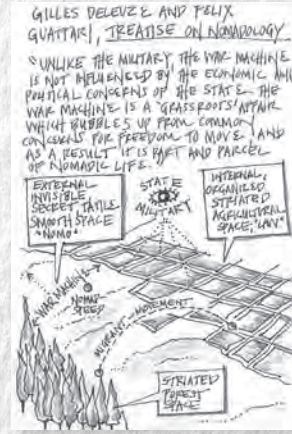 GILLES DELEUZE AND FELIX
GUATTARI, TREATISE ON NOMADOLOGY
"UNLIKE THE MILITARY, THE WAR MACHINE
IS NOT INFLUENCED BY THE ECONOMIC AND
POLITICAL CONCERNS OF THE STATE. THE
WAR MACHINE IS A "GRASSROOTS" AFFAIR
WHICH BUBBLES UP FROM COMMON
CONCERNS FOR FREEDOM TO MOVE, AND
AS A RESULT IT IS PART AND PARCEL
OF NOMADIC LIFE.
EXTERNAL
INVISIBLE
SECRET, TACTILE
SMOOTH SPACE
"NOMO"
STATE
MILITARY
INTERNAL,
ORGANIZED
STRIATED
AGRICULTURAL
SPACE, "LAW"
WAR MACHINE
NOMAD
SPEED
MIGRANT MOVEMENT
STRIATED
FOREST
SPACE